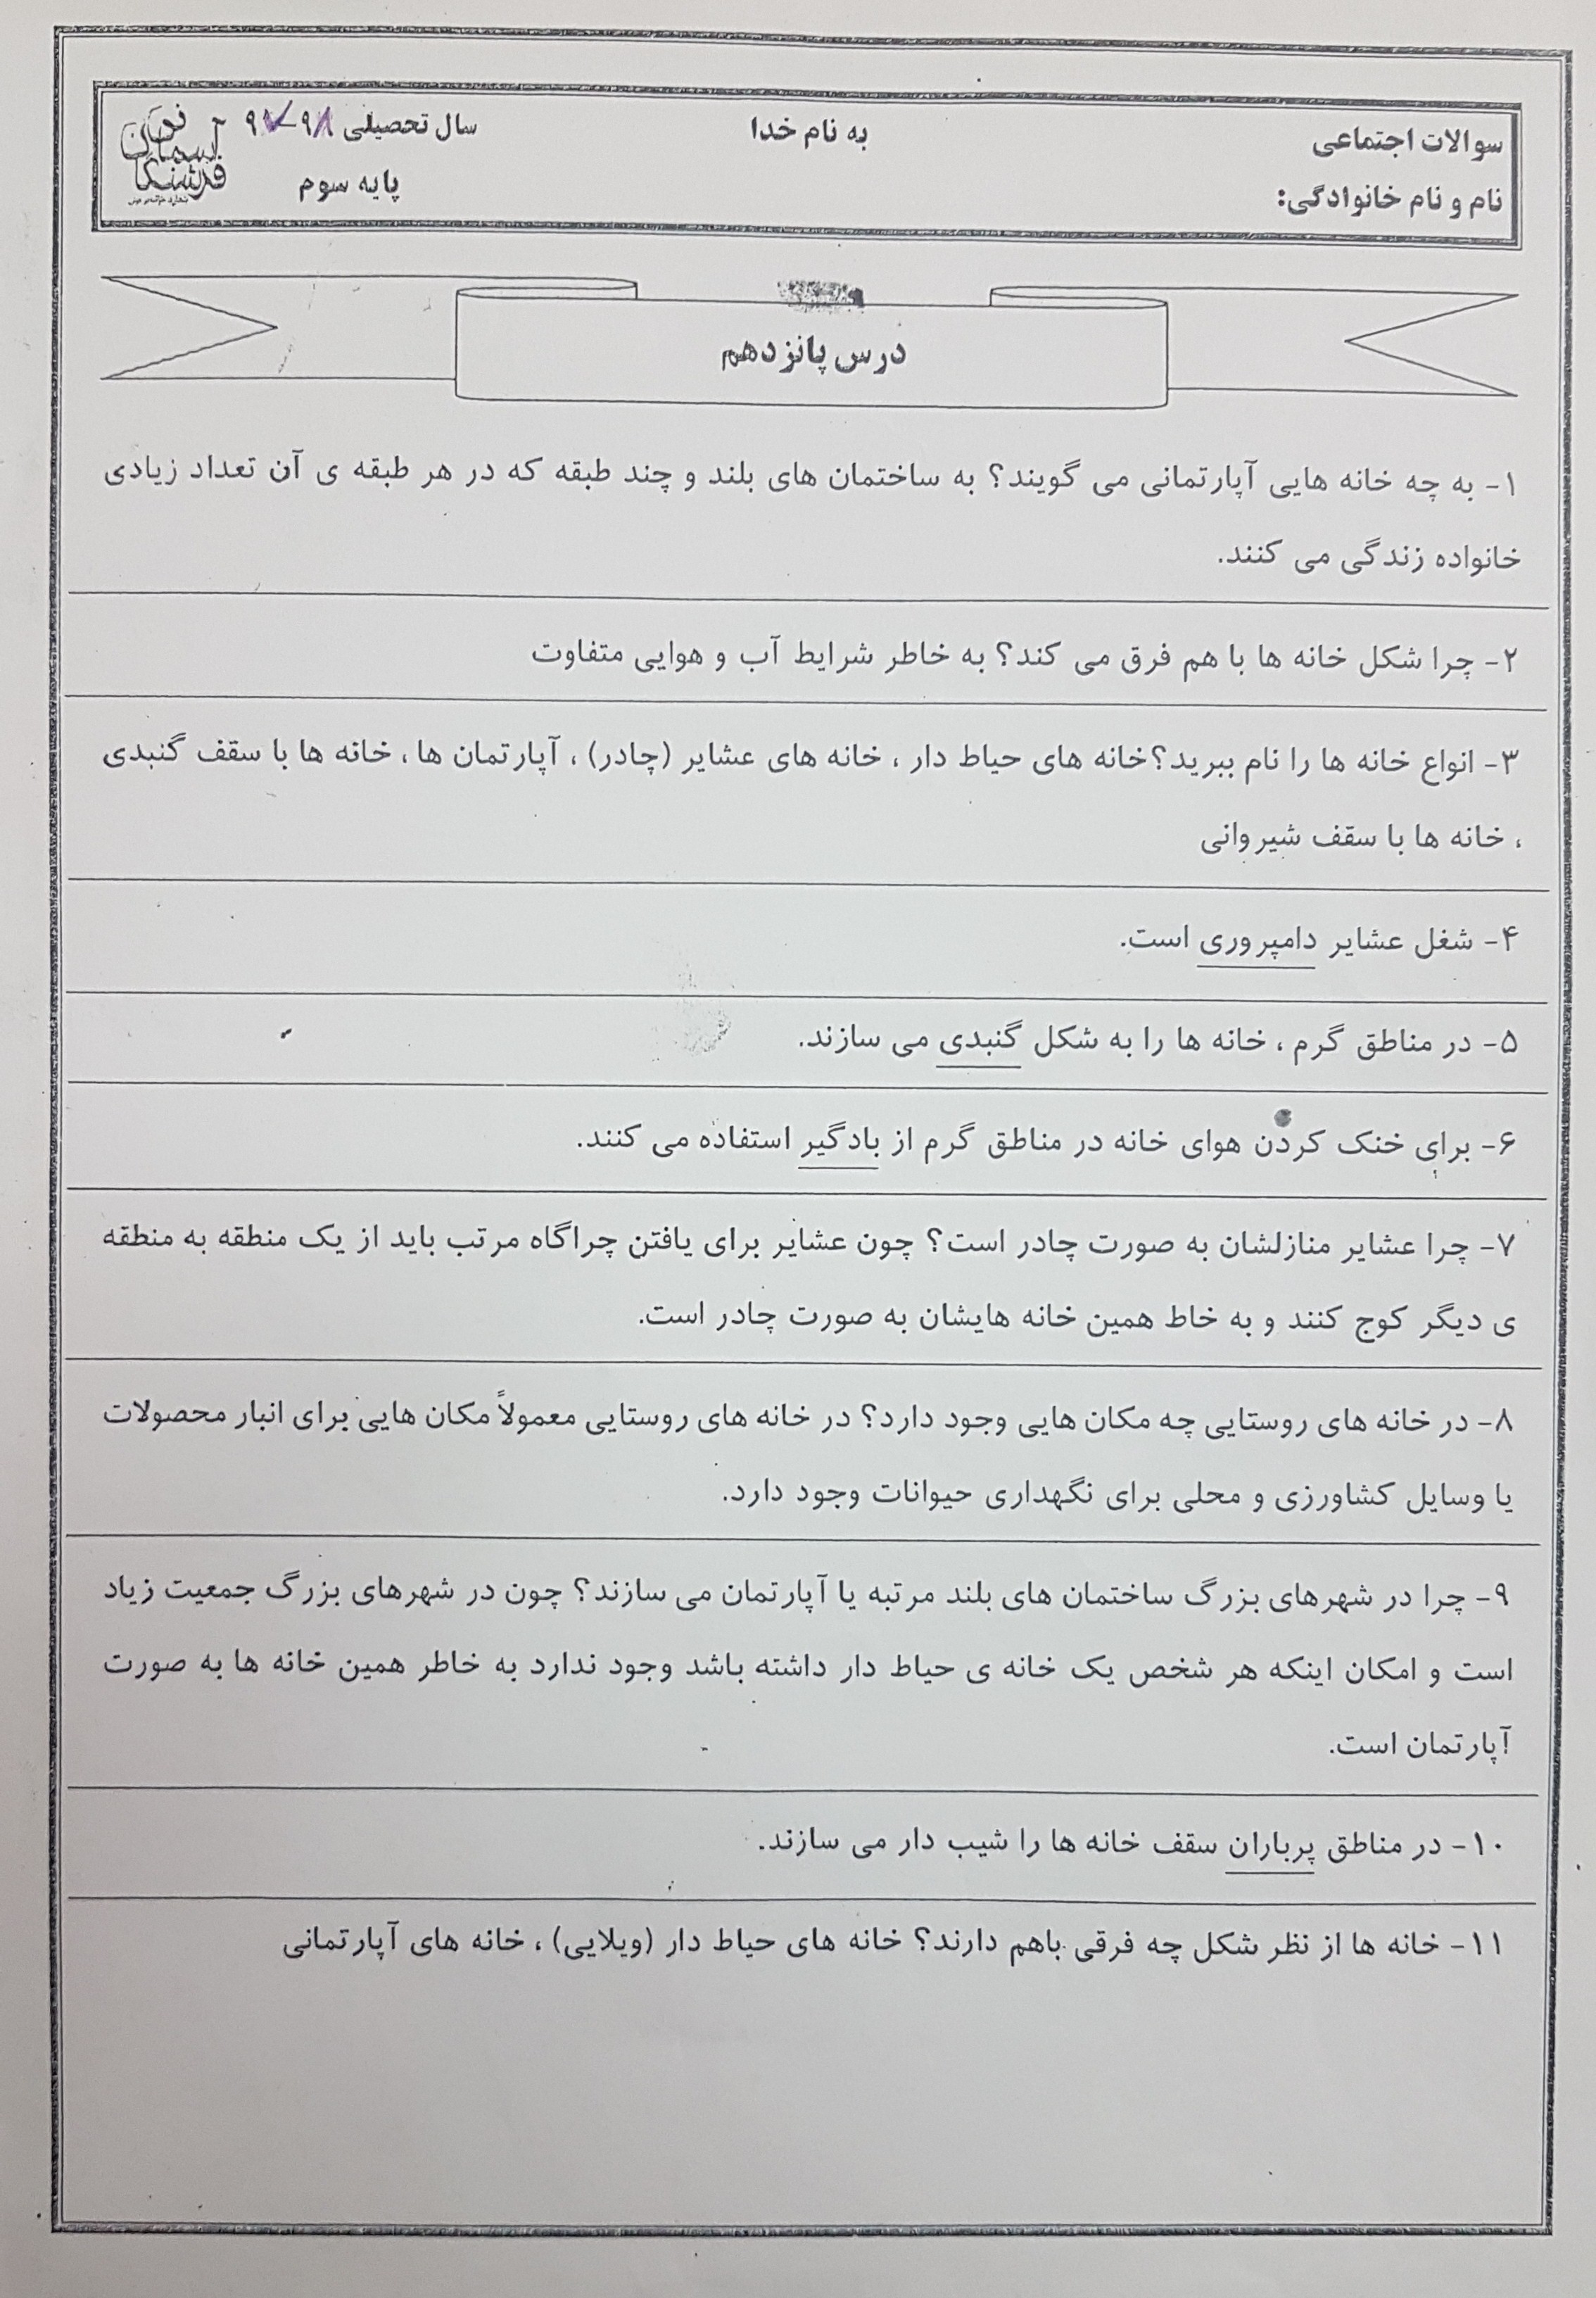 سوالات اجتماعی
به نام خدا
سال تحصیلی ۹۸-۹۷
نام و نام خانوادگی:
پایه سوم
درس پانزدهم
۱- به چه خانه هایی آپارتمانی می گویند؟ به ساختمان های بلند و چند طبقه که در هر طبقه ی آن تعداد زیادی
خانواده زندگی می کنند.
۲- چرا شکل خانه ها با هم فرق می کند؟ به خاطر شرایط آب و هوایی متفاوت
۳- انواع خانه ها را نام ببرید؟خانه های حیاط دار ، خانه های عشایر (چادر) ، آپارتمان ها ، خانه ها با سقف گنبدی
، خانه ها با سقف شیروانی
۴- شغل عشایر دامپروری است.
۵- در مناطق گرم ، خانه ها را به شکل گنبدی می سازند.
۶- برای خنک کردن هوای خانه در مناطق گرم از بادگیر استفاده می کنند.
۷- چرا عشایر منازلشان به صورت چادر است؟ چون عشایر برای یافتن چراگاه مرتب باید از یک منطقه به منطقه
ی دیگر کوچ کنند و به خاط همین خانه هایشان به صورت چادر است.
۸- در خانه های روستایی چه مکان هایی وجود دارد؟ در خانه های روستایی معمولاً مکان هایی برای انبار محصولات
یا وسایل کشاورزی و محلی برای نگهداری حیوانات وجود دارد.
۹- چرا در شهرهای بزرگ ساختمان های بلند مرتبه یا آپارتمان می سازند؟ چون در شهرهای بزرگ جمعیت زیاد
است و امکان اینکه هر شخص یک خانه ی حیاط دار داشته باشد وجود ندارد به خاطر همین خانه ها به صورت
آپارتمان است.
۱۰- در مناطق پرباران سقف خانه ها را شیب دار می سازند.
۱۱- خانه ها از نظر شکل چه فرقی باهم دارند؟ خانه های حیاط دار (ویلایی) ، خانه های آپارتمانی